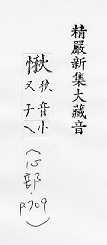 精嚴新集大藏音
愀
音小
又子
（心部．p.709